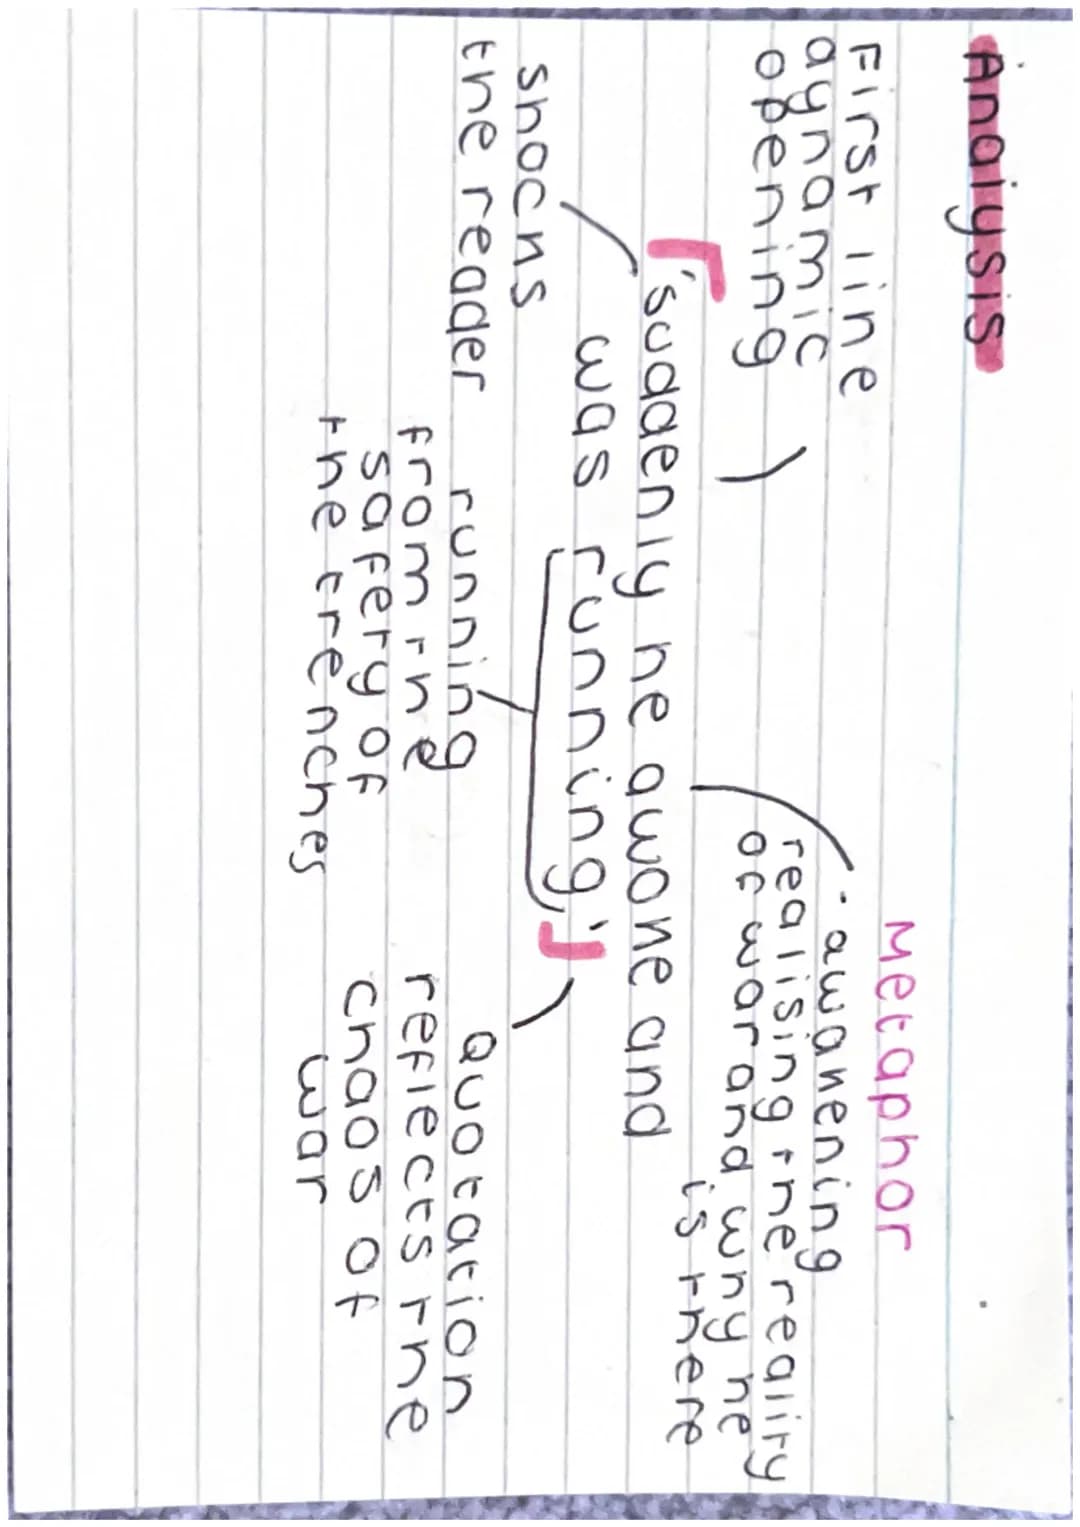 Analysis
First line
dynamic
opening
Metaphor
- awakening
realising the reality
of war and why he
is there
'suddenly he awoke and
was running'
shocks
the reader
running
from the
safety of
the trenches
Quotation
reflects the
chaos of
war